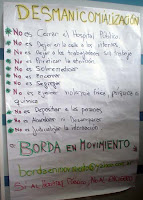 DESMANICOMIALIZACIÓN
No es Cerrar el Hospital Público.
No es Dejar en la calle a los internos
No es dejar a los trabajadores sin trabajo
No es Privatizar la atención
No es Sobremedicar
No es Encerrar
No es Segregar
No es Ejercer violencia física, psíquica o química
No es Depositar a las personas
No es Abandonar
No es Judicializar la internación
BORDA EN MOVIMIENTO